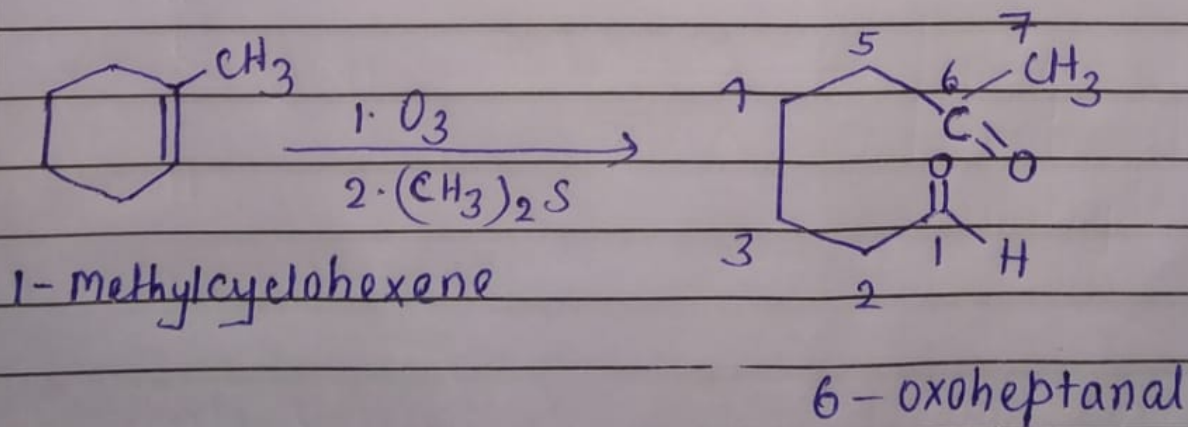 CH3
1. O3
2. (CH3)2 S
1-methylcyclohexene
5
7
4
6
CH3
C
O
O
3
2
1
H
6-oxoheptanal